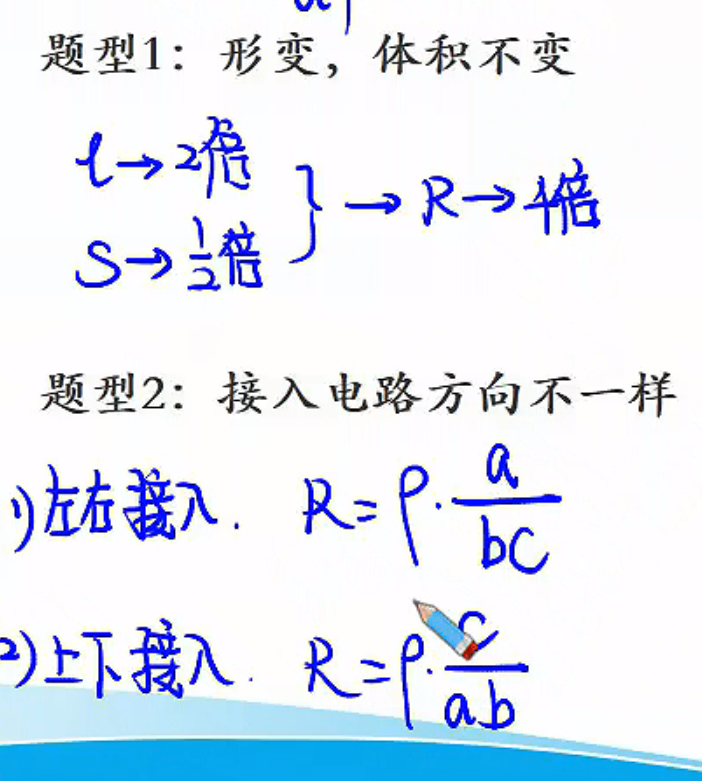 题型1：形变，体积不变
l→2倍
S→1/2倍 } → R→4倍
题型2：接入电路方向不一样
1)左右接入. R=ρ·a/bc
2)上下接入. R=ρ·c/ab